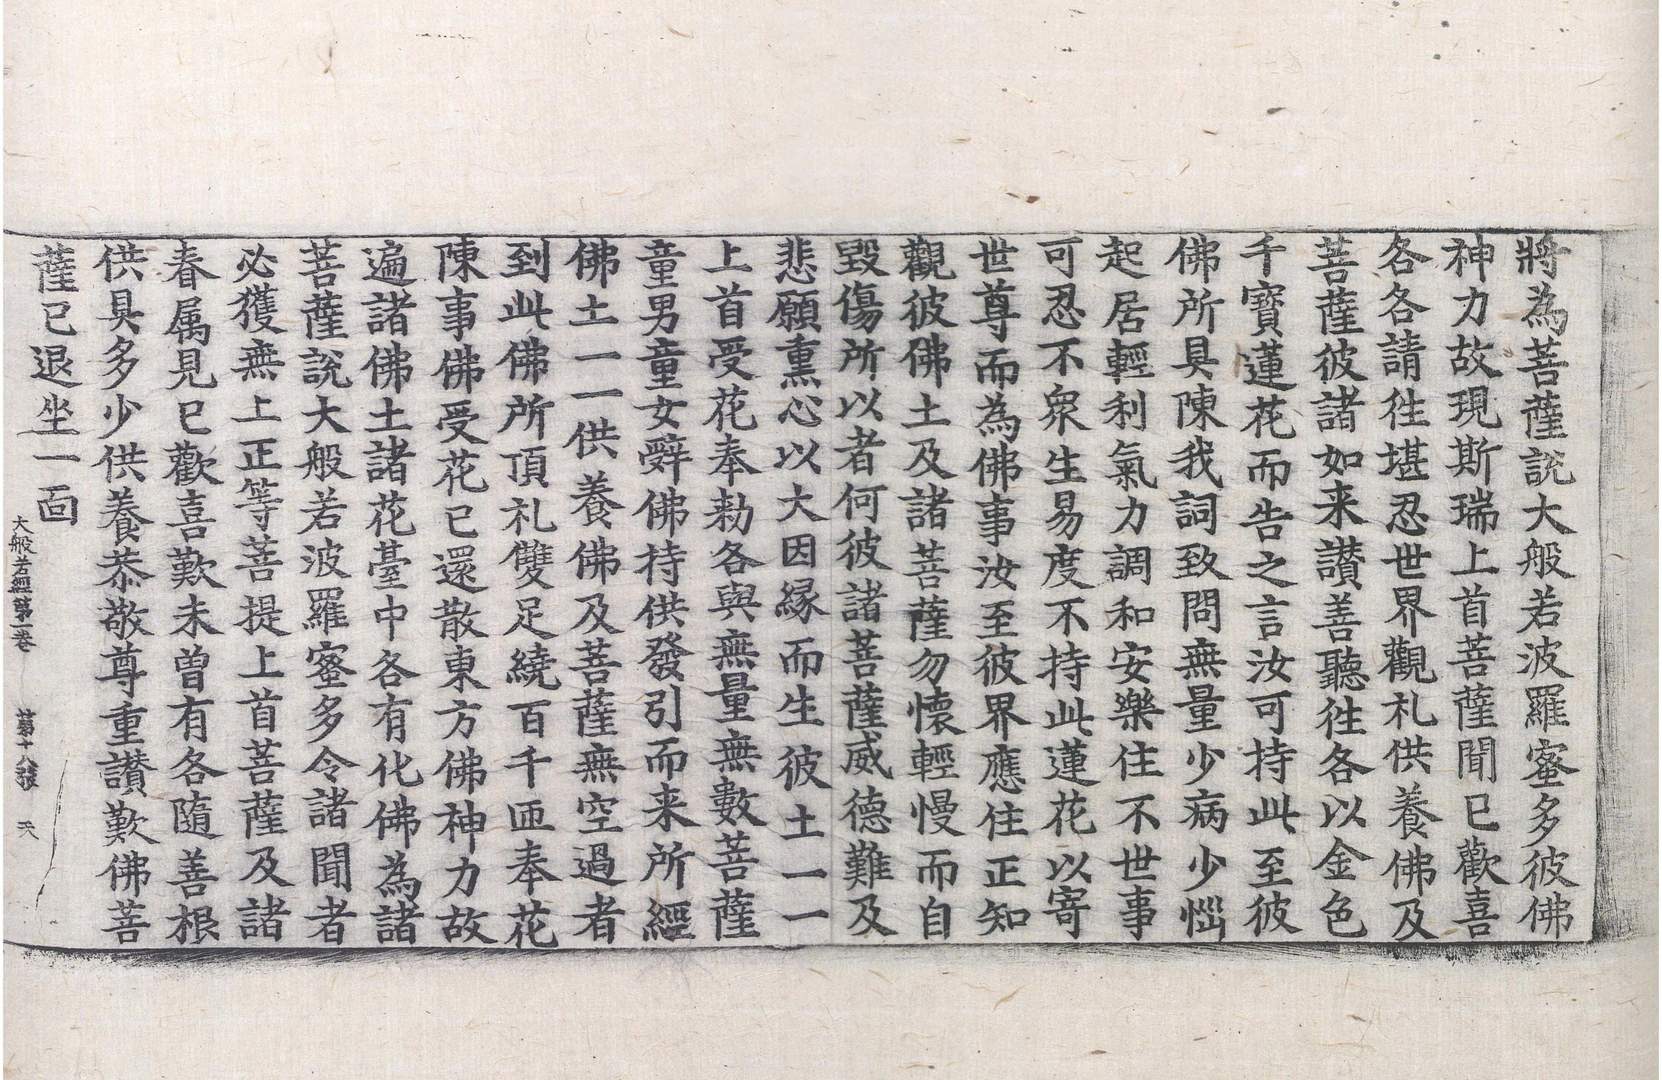 將為菩薩說大般若波羅蜜多彼佛
神力故現斯瑞上首菩薩聞已歡喜
各各請往堪忍世界觀礼供養佛及
菩薩彼諸如来讃善聽往各以金色
千寶蓮花而告之言汝可持此至彼
佛所具陳我詞致問無量少病少惱
起居輕利氣力調和安樂住不世事
可忍不衆生易度不持此蓮花以寄
世尊而為佛事汝至彼界應住正知
觀彼佛土及諸菩薩勿懷輕慢而自
毀傷所以者何彼諸菩薩威德難及
悲願熏心以大因縁而生彼土一一
上首受花奉勑各與無量無數菩薩
童男童女辭佛持供發引而来所經
佛土一一供養佛及菩薩無空過者
到此佛所頂礼雙足繞百千匝奉花
陳事佛受花已還散東方佛神力故
遍諸佛土諸花臺中各有化佛為諸
菩薩說大般若波羅蜜多令諸聞者
必獲無上正等菩提上首菩薩及諸
眷属見已歡喜歎未曾有各隨善根
供具多少供養恭敬尊重讃歎佛菩
薩已退坐一面
大般若經第一卷　第十八張　天